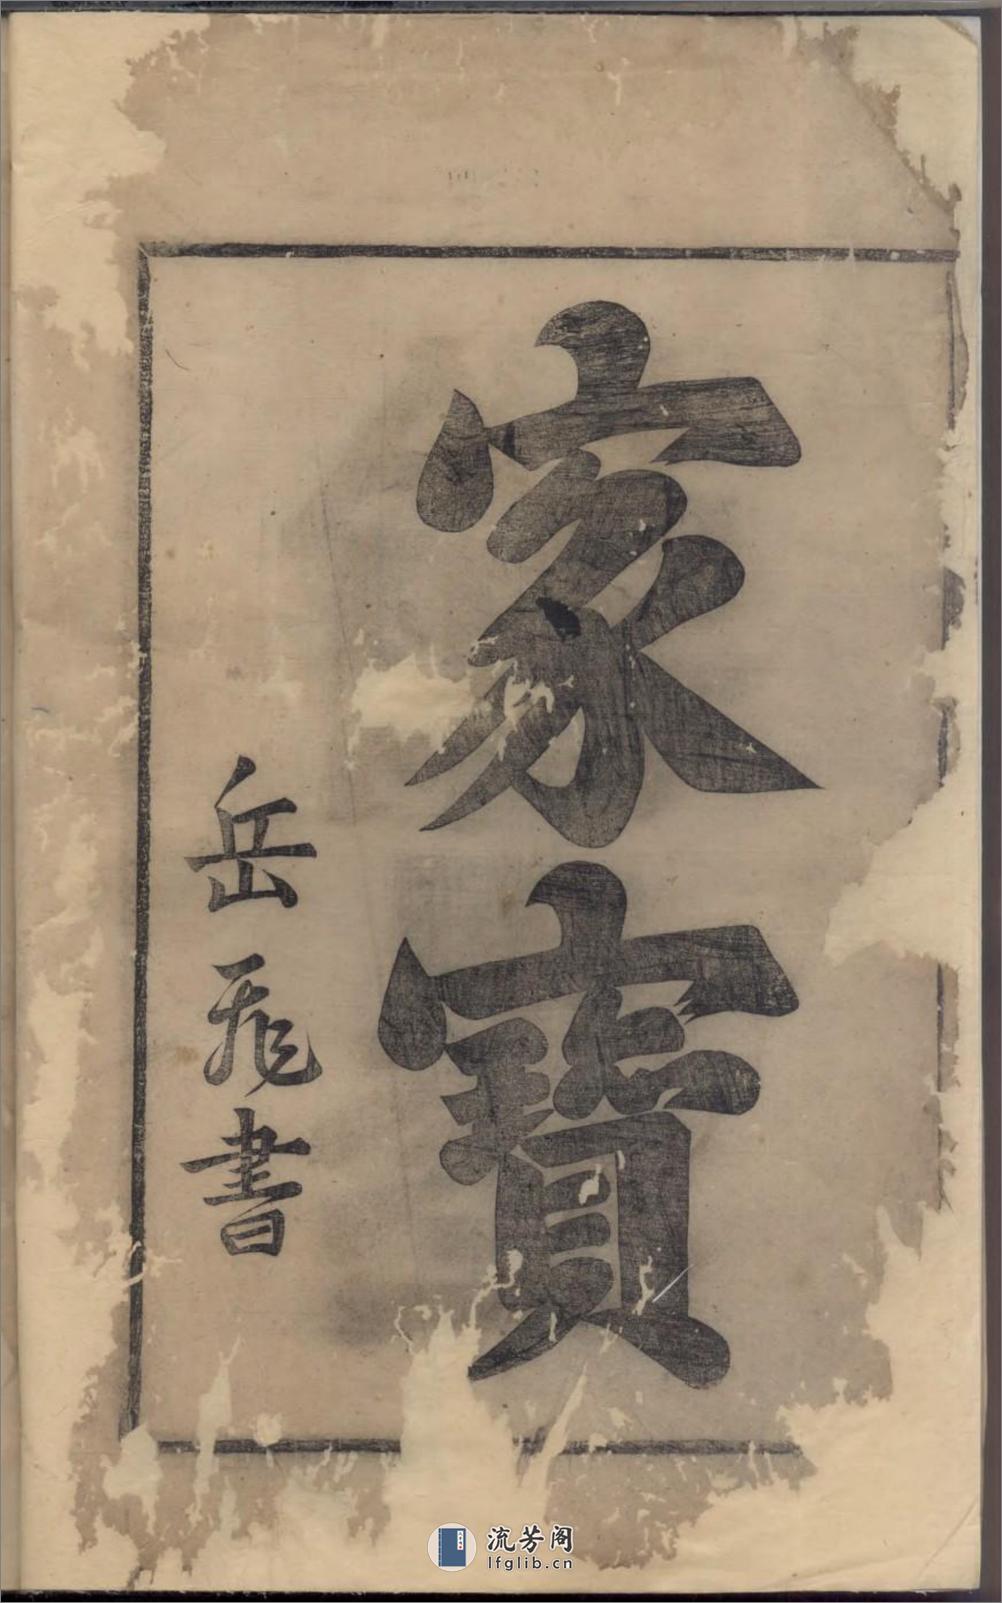 家寶
岳飛書
流芳阁
lfglib.cn